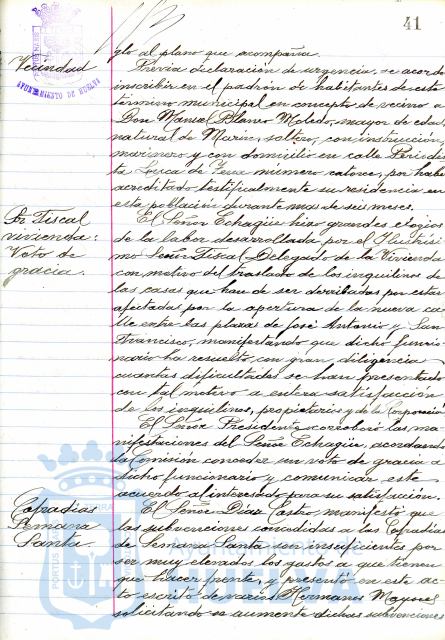 41
glo al plano que acompaña.
Vecindad
Previa declaración de urgencia, se acordó
inscribir en el padrón de habitantes de este
término municipal en concepto de vecino a
Don Manuel Blanco Moledo, mayor de edad
natural de Marín, soltero, con instrucción,
marinero y con domicilio en calle Periodis
ta Luca de Tena número catorce, por haber
acreditado testificalmente su residencia en
esta población durante mas de seis meses.
Sr. Fiscal
vivienda:
Voto de
gracia.
El Señor Echagüe hizo grandes elogios
de la labor desarrollada por el Ilustrísi
mo Señor Fiscal Delegado de la Vivienda
con motivo del traslado de los inquilinos de
las casas que han de ser derribadas por estar
afectadas por la apertura de la nueva ca
lle entre las plazas de José Antonio y San
Francisco, manifestando que dicho funcio
nario ha resuelto con gran diligencia
cuantas dificultades se han presentado
con tal motivo a entera satisfacción
de los inquilinos, propietarios y de la Corporación
El Señor Presidente corroboró las ma
nifestaciones del Señor Echagüe, acordando
la Comisión conceder un voto de gracia a
dicho funcionario y comunicar este
acuerdo al interesado para su satisfacción.
Cofradías
Semana
Santa.
El Señor Díaz Castro manifestó que
las subvenciones concedidas a las Cofradías
de Semana Santa son insuficientes por
ser muy elevados los gastos a que tienen
que hacer frente, y presentó en este ac
to escrito de varios Hermanos Mayores
solicitando se aumente dichas subvenciones